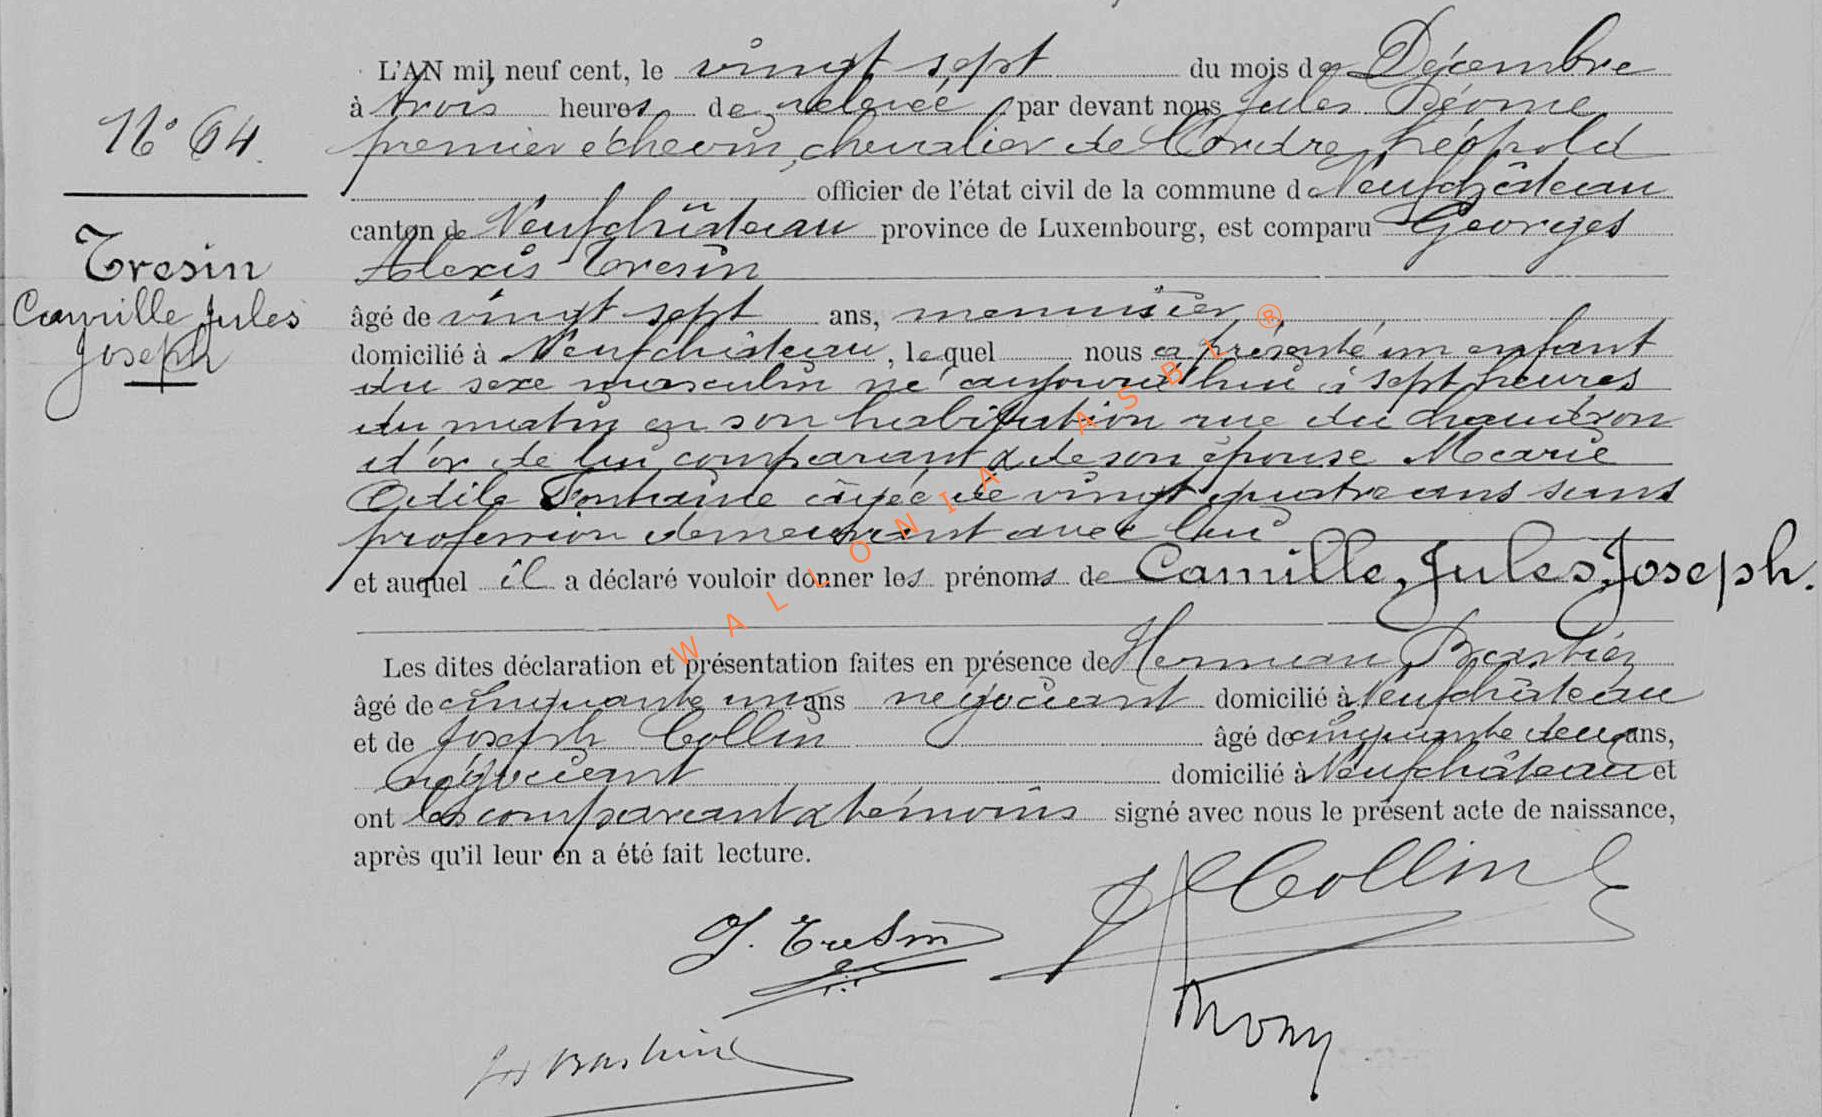 L'AN mil neuf cent, le vingt sept du mois de Décembre
à trois heures de relevée, par devant nous Jules
premier échevin, chevalier de l'ordre Léopold
officier de l'état civil de la commune de Neufchâteau
canton de Neufchâteau province de Luxembourg, est comparu Georges
Alexis Tresin
âgé de vingt sept ans, menuisier
domicilié à Neufchâteau, lequel nous a présenté un enfant
du sexe masculin né aujourd'hui à sept heures
du matin en son habitation rue du chaudron
d'or de lui comparant & de son épouse Marie
Odile Fontaine âgée de vingt quatre ans sans
profession demeurant avec lui
et auquel il a déclaré vouloir donner les prénoms de Camille, Jules, Joseph.
Les dites déclaration et présentation faites en présence de Herman Bastien
âgé de cinquante un ans négociant domicilié à Neufchâteau
et de Joseph Collin âgé de cinquante deux ans,
négociant domicilié à Neufchâteau et
ont les comparant & témoins signé avec nous le présent acte de naissance,
après qu'il leur en a été fait lecture.
N° 64.
Tresin
Camille Jules
Joseph
Collin
G. Tresin
WALLONIA ASBL ®